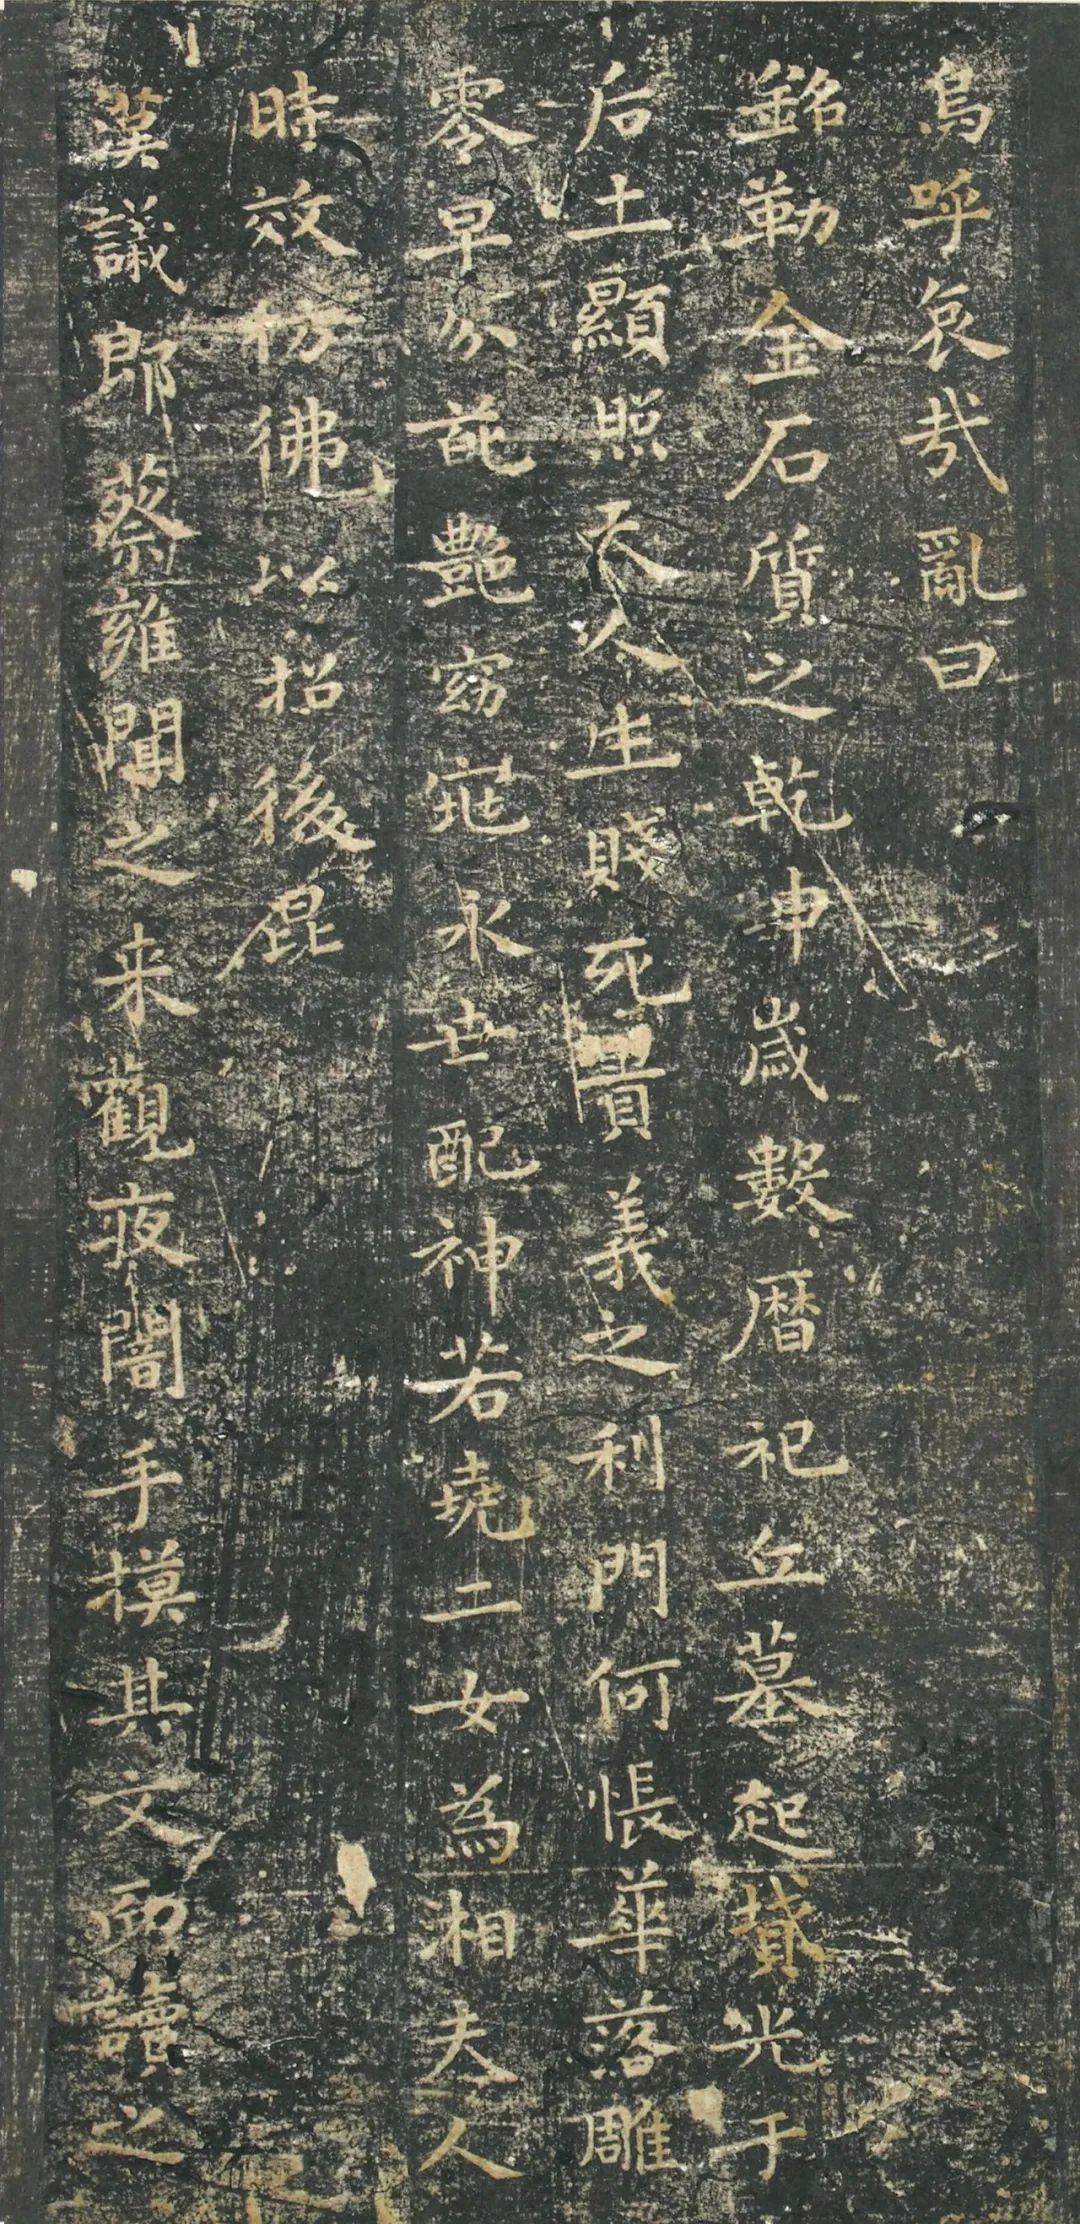 烏呼哀哉亂曰
銘勒金石質之乾坤歲數暦祀丘墓起墳光于
后土顯照天人生賤死貴義之利門何悵華落雕
零早分葩艷窈窕永世配神若堯二女為湘夫人
時效彷彿以招後昆
漢議郎蔡雍聞之来觀夜闇手摸其文而讀之